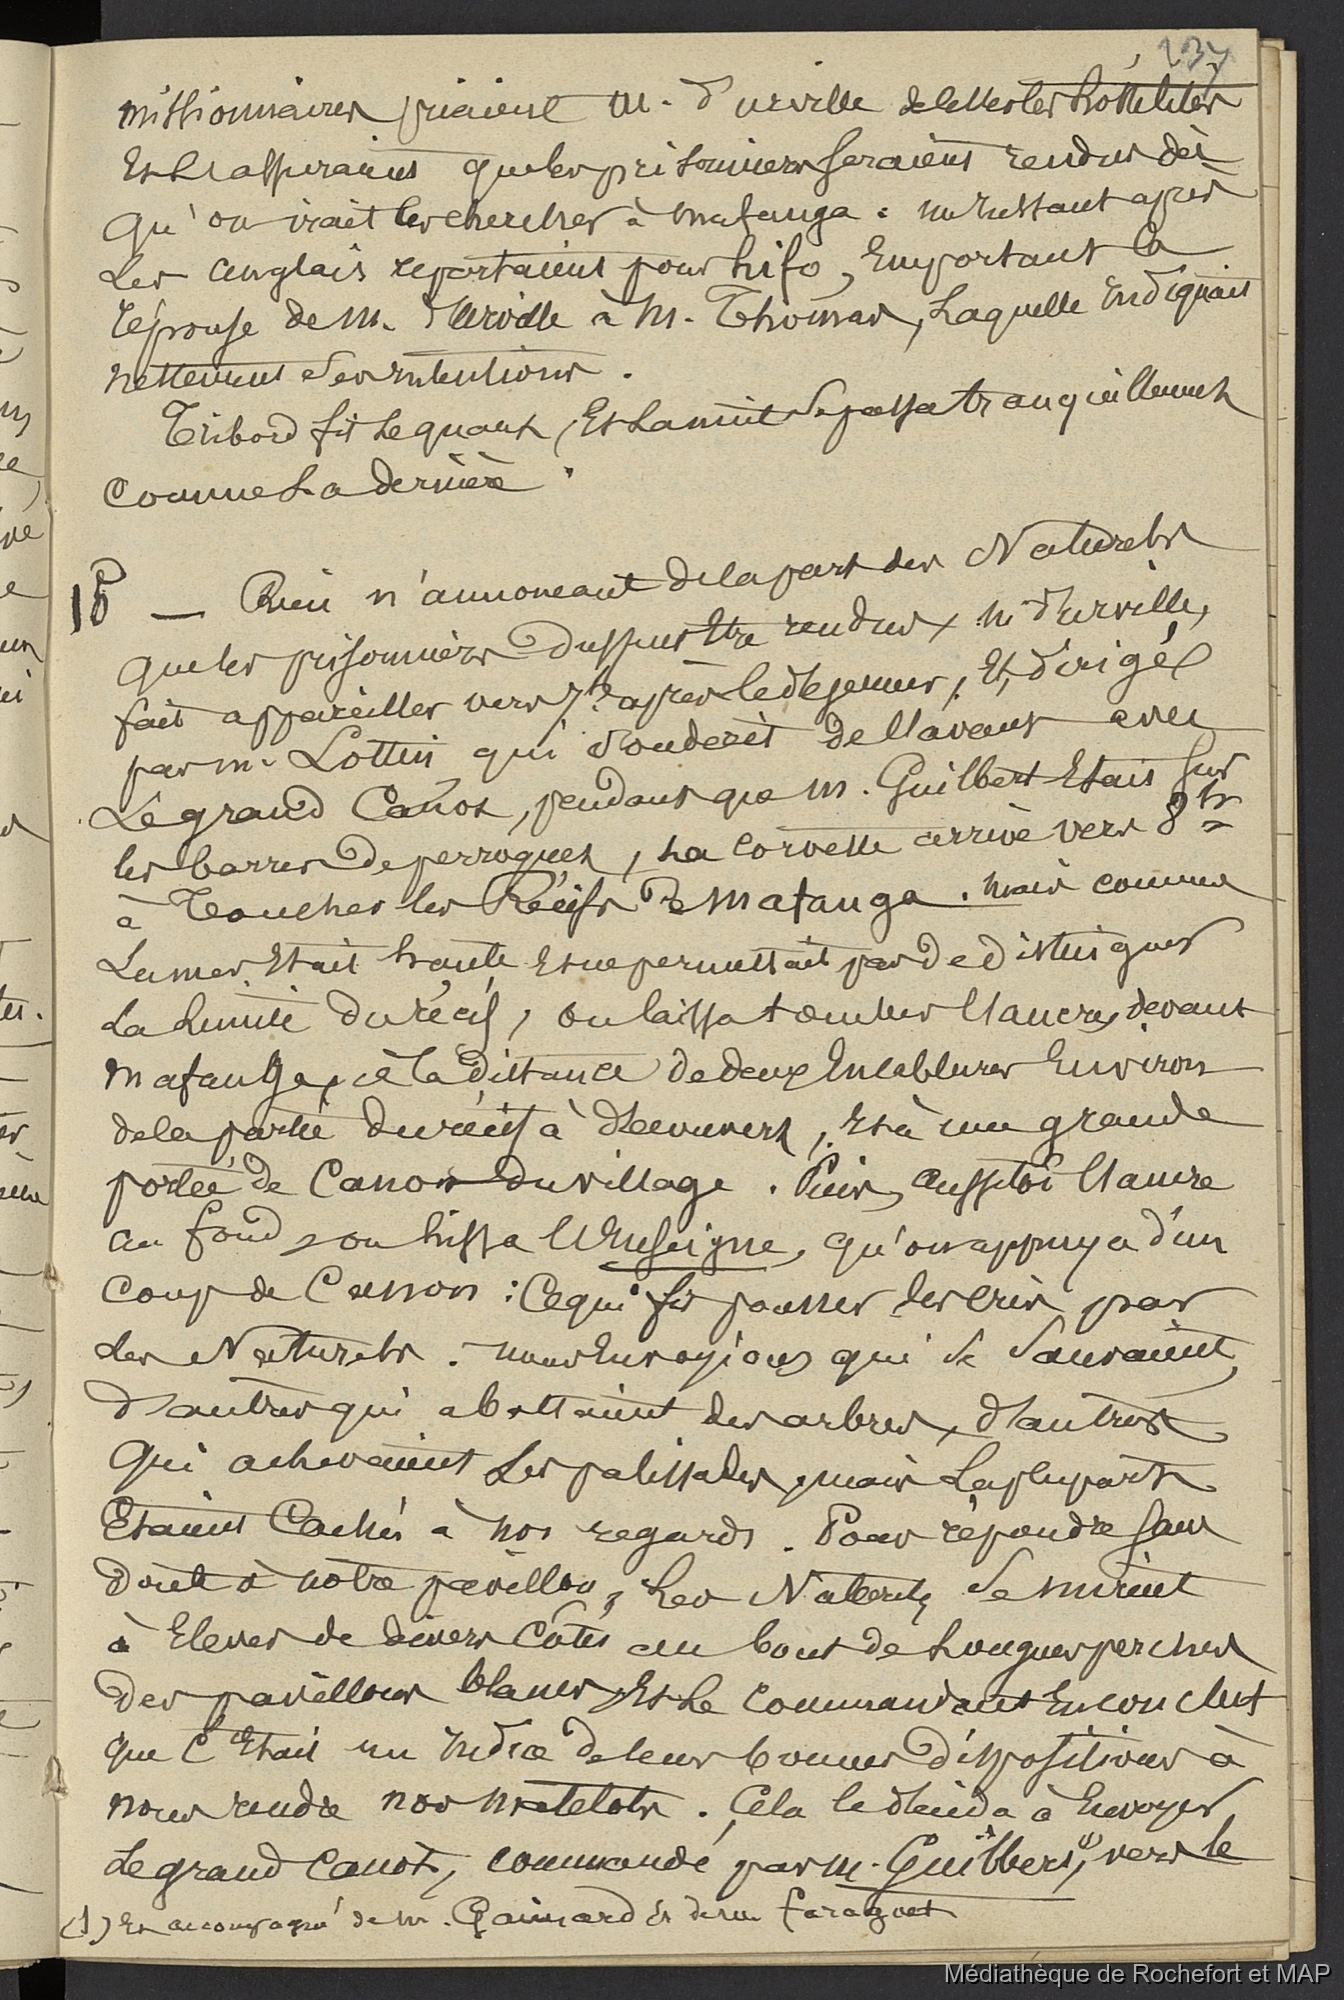 237
missionnaires priaient M. d'urville de cesser les hostilités
Et l'assuraient que les prisonniers seraient rendus dès
qu'on irait les chercher à Mafanga : un instant après
les anglais repartaient pour hifo, Emportant la
réponse de M. d'urville à M. Thomas, laquelle indiquait
nettement ses intentions.
Tribord fit le quart, Et la nuit se passa tranquillement
comme la dernière.
18 — Rien n'annoncant de la part des Naturels
que les prisonniers dussent être rendus, M. d'urville,
fait appareiller vers 7h après le déjeuner, Et, dirigée
par M. Lottin qui sonderait de l'avant avec
Le grand Canot, pendant que M. Guilbert Etait sur
les barres de perroquet, la corvette arrive vers 8h
à toucher les Récifs de Mafanga. mais comme
La mer Etait haute et ne permettait pas de distinguer
la limite du récif, on laissa tomber l'ancre, devant
Mafanga, à la distance de deux Encablures Environ
de la partie du récif à découvert, Et à une grande
portée de Canon du village. Puis, aussitôt l'ancre
au fond, on hissa l'Enseigne, qu'on appuya d'un
coup de Canon : Ce qui fit pousser des cris par
les Naturels. nous En voyions qui se sauvaient,
d'autres qui abattaient des arbres, d'autres
qui achevaient les palissades, mais la plupart
Etaient Cachés à nos regards. Pour répondre sans
doute à notre pavillon, les Naturels se mirent
à Elever de divers Côtés au bout de longues perches
des pavillons blancs, Et le commandant En conclut
que C'Etait un indice de leurs bonnes dispositions à
nous rendre nos matelots. Cela le décida à Envoyer
Le grand Canot, commandé par M. Guilbert, (1) vers le
(1) Et accompagné de M. Gaimard Et de M. Faraguet
Médiathèque de Rochefort et MAP